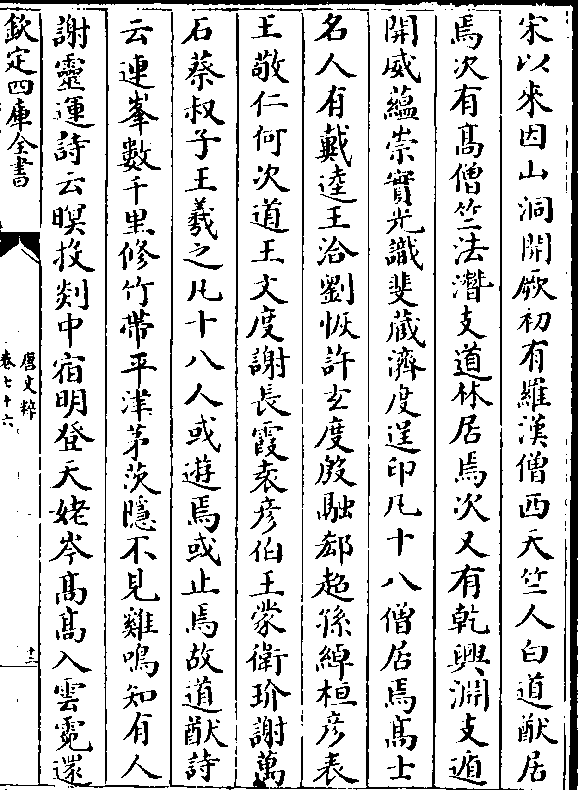 宋以來因山洞開厥初有羅漢僧西天竺人白道猷居
焉次有髙僧竺法潛支道林居焉次又有乾興淵支遁
開威藴崇實光識斐藏濟度逞印凡十八僧居焉髙士
名人有戴逵王洽劉恢許玄度殷融郄超孫綽桓彦表
王敬仁何次道王文度謝長霞袁彦伯王蒙衛玠謝萬
石蔡叔子王羲之凡十八人或遊焉或止焉故道猷詩
云連峯數千里修竹帶平津茅茨隱不見雞鳴知有人
謝靈運詩云暝投剡中宿明登天姥岑髙髙入雲霓還
欽定四庫全書
唐文粹
卷七十六
十三